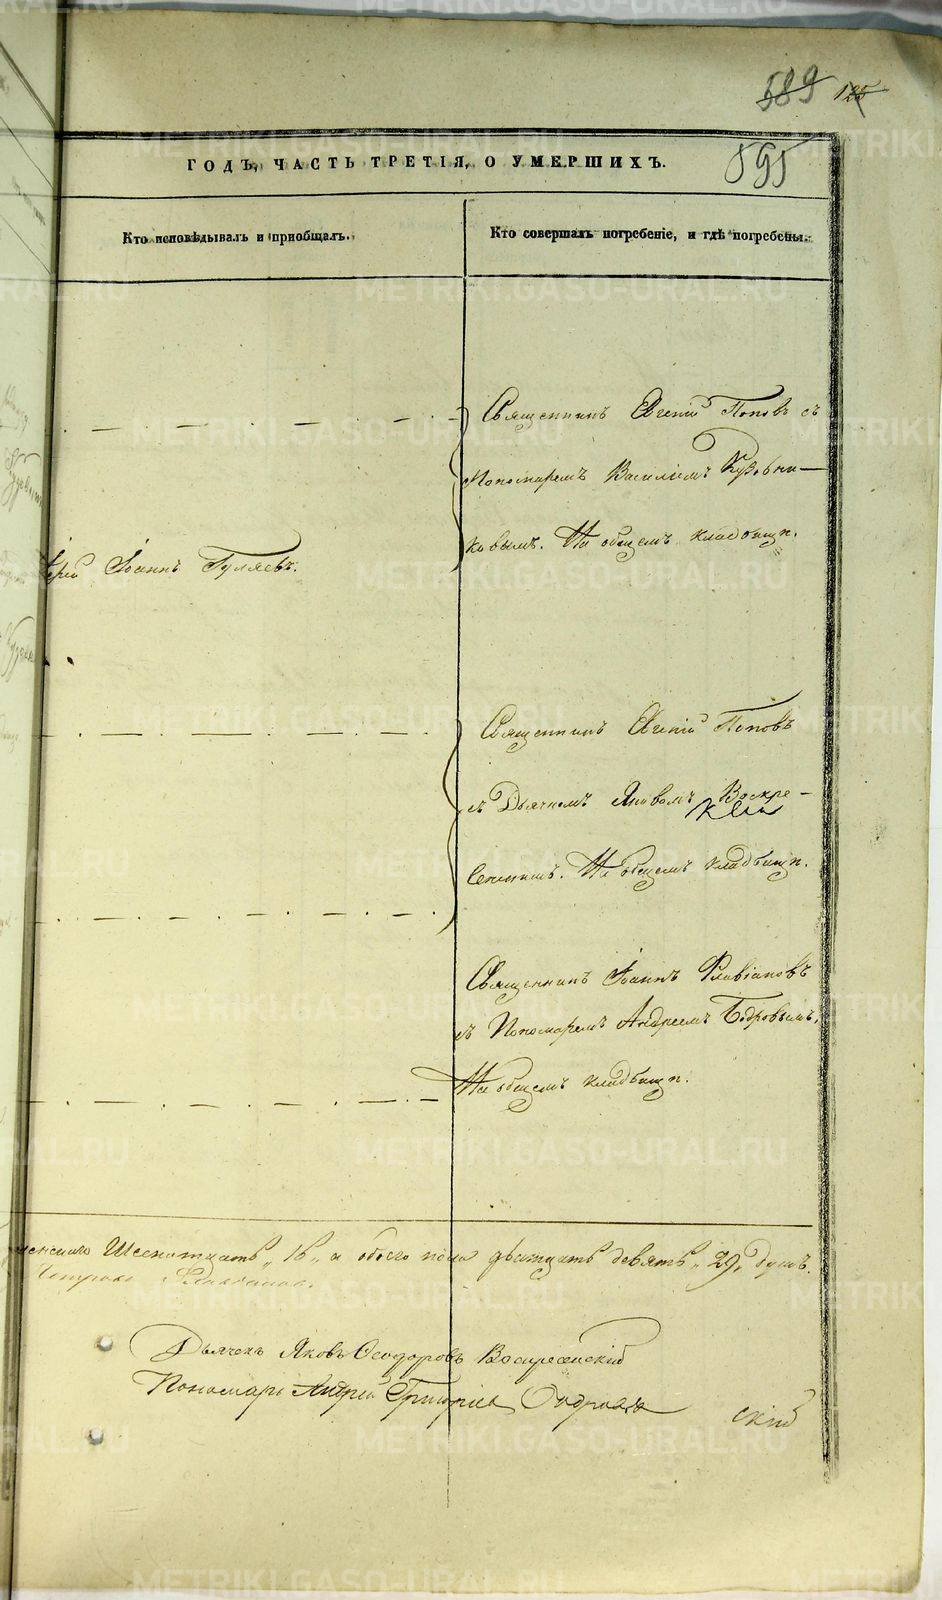 589 125
595
ГОДЪ, ЧАСТЬ ТРЕТІЯ, О УМЕРШИХЪ.
Кто исповѣдывалъ и пріобщалъ.
Кто совершалъ погребеніе, и гдѣ погребены.
Священникъ Евгеній Поповъ съ
Пономаремъ Василіемъ
ковымъ. На общемъ кладбищѣ.
Іерей Іоаннъ Гуляевъ.
Священникъ Евгеній Поповъ
съ Дьячкомъ Яковомъ Воскре-
сенскимъ. На общемъ кладбищѣ.
Священникъ Іоаннъ Флавіановъ
съ Пономаремъ Андреемъ Бодровымъ,
На общемъ кладбищѣ.
женскаго Шестнатцать „16„ а обоего пола дватцать девять „29„ душъ.
Дьячекъ Яковъ Ѳеодоровъ Воскресенскій
Пономарь Андрей
скій
METRIKI.GASO-URAL.RU